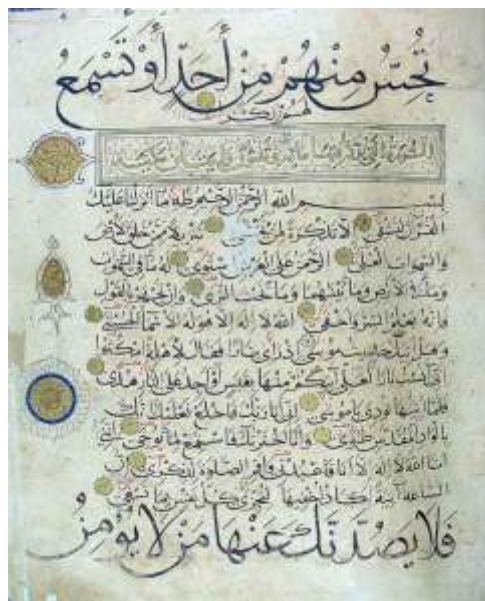 تُحِسُّ مِنْهُمْ مِنْ أَحَدٍ أَوْ تَسْمَعُ
لهم ركزا
السورة التي
بسم الله الرحمن الرحيم طه ما انزلنا عليك
القران لتشقى الا تذكرة لمن يخشى تنزيلا ممن خلق الارض
والسموات العلى الرحمن على العرش استوى له ما في السموات
وما في الارض وما بينهما وما تحت الثرى وان تجهر بالقول
فانه يعلم السر واخفى الله لا اله الا هو له الاسماء الحسنى
وهل اتيك حديث موسى اذ رأى نارا فقال لاهله امكثوا
اني انست نارا لعلي اتيكم منها بقبس او اجد على النار هدى
فلما اتيها نودي يا موسى اني انا ربك فاخلع نعليك انك
بالواد المقدس طوى وانا اخترتك فاستمع لما يوحى انني
انا الله لا اله الا انا فاعبدني واقم الصلوة لذكري ان
الساعة اتية اكاد اخفيها لتجزى كل نفس بما تسعى
فَلَا يَصُدَّنَّكَ عَنْهَا مَنْ لَا يُؤْمِنُ